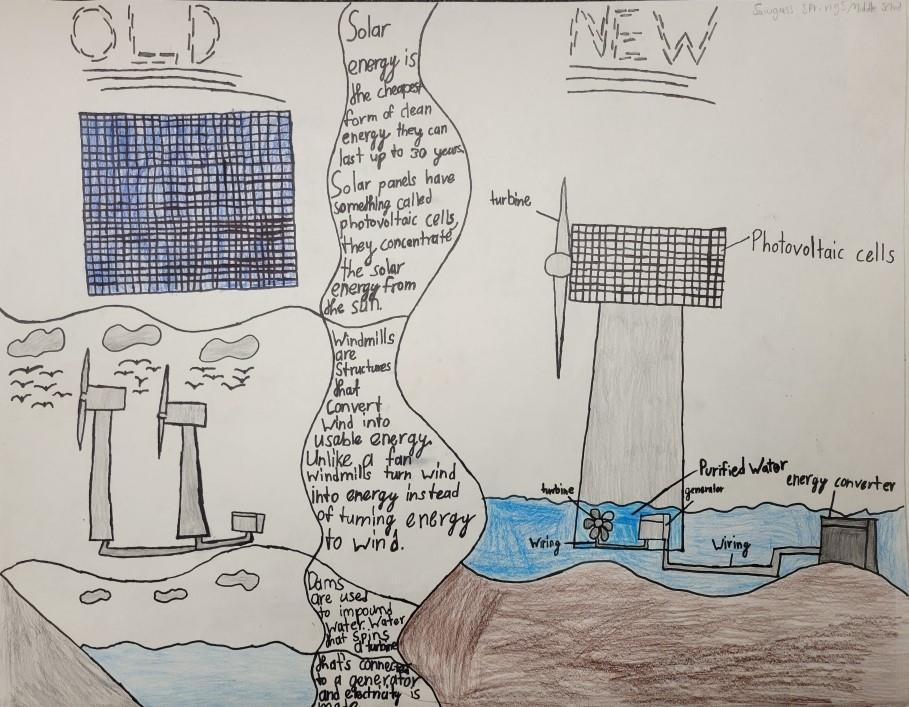 OLD
NEW
Sawgrass Springs Middle School
Solar
energy is
the cheapest
form of clean
energy they can
last up to 30 years.
Solar panels have
something called
photovoltaic cells,
they concentrate
the solar
energy from
the sun.
Windmills
are
Structures
that
Convert
Wind into
usable energy.
Unlike a fan
windmills turn wind
into energy instead
of turning energy
to wind.
Dams
are used
to impound
water. Water
that spins
a turbine
that's connected
to a generator
and electricity is
made
turbine
Photovoltaic cells
Purified Water
energy converter
turbine
generator
Wiring
Wiring